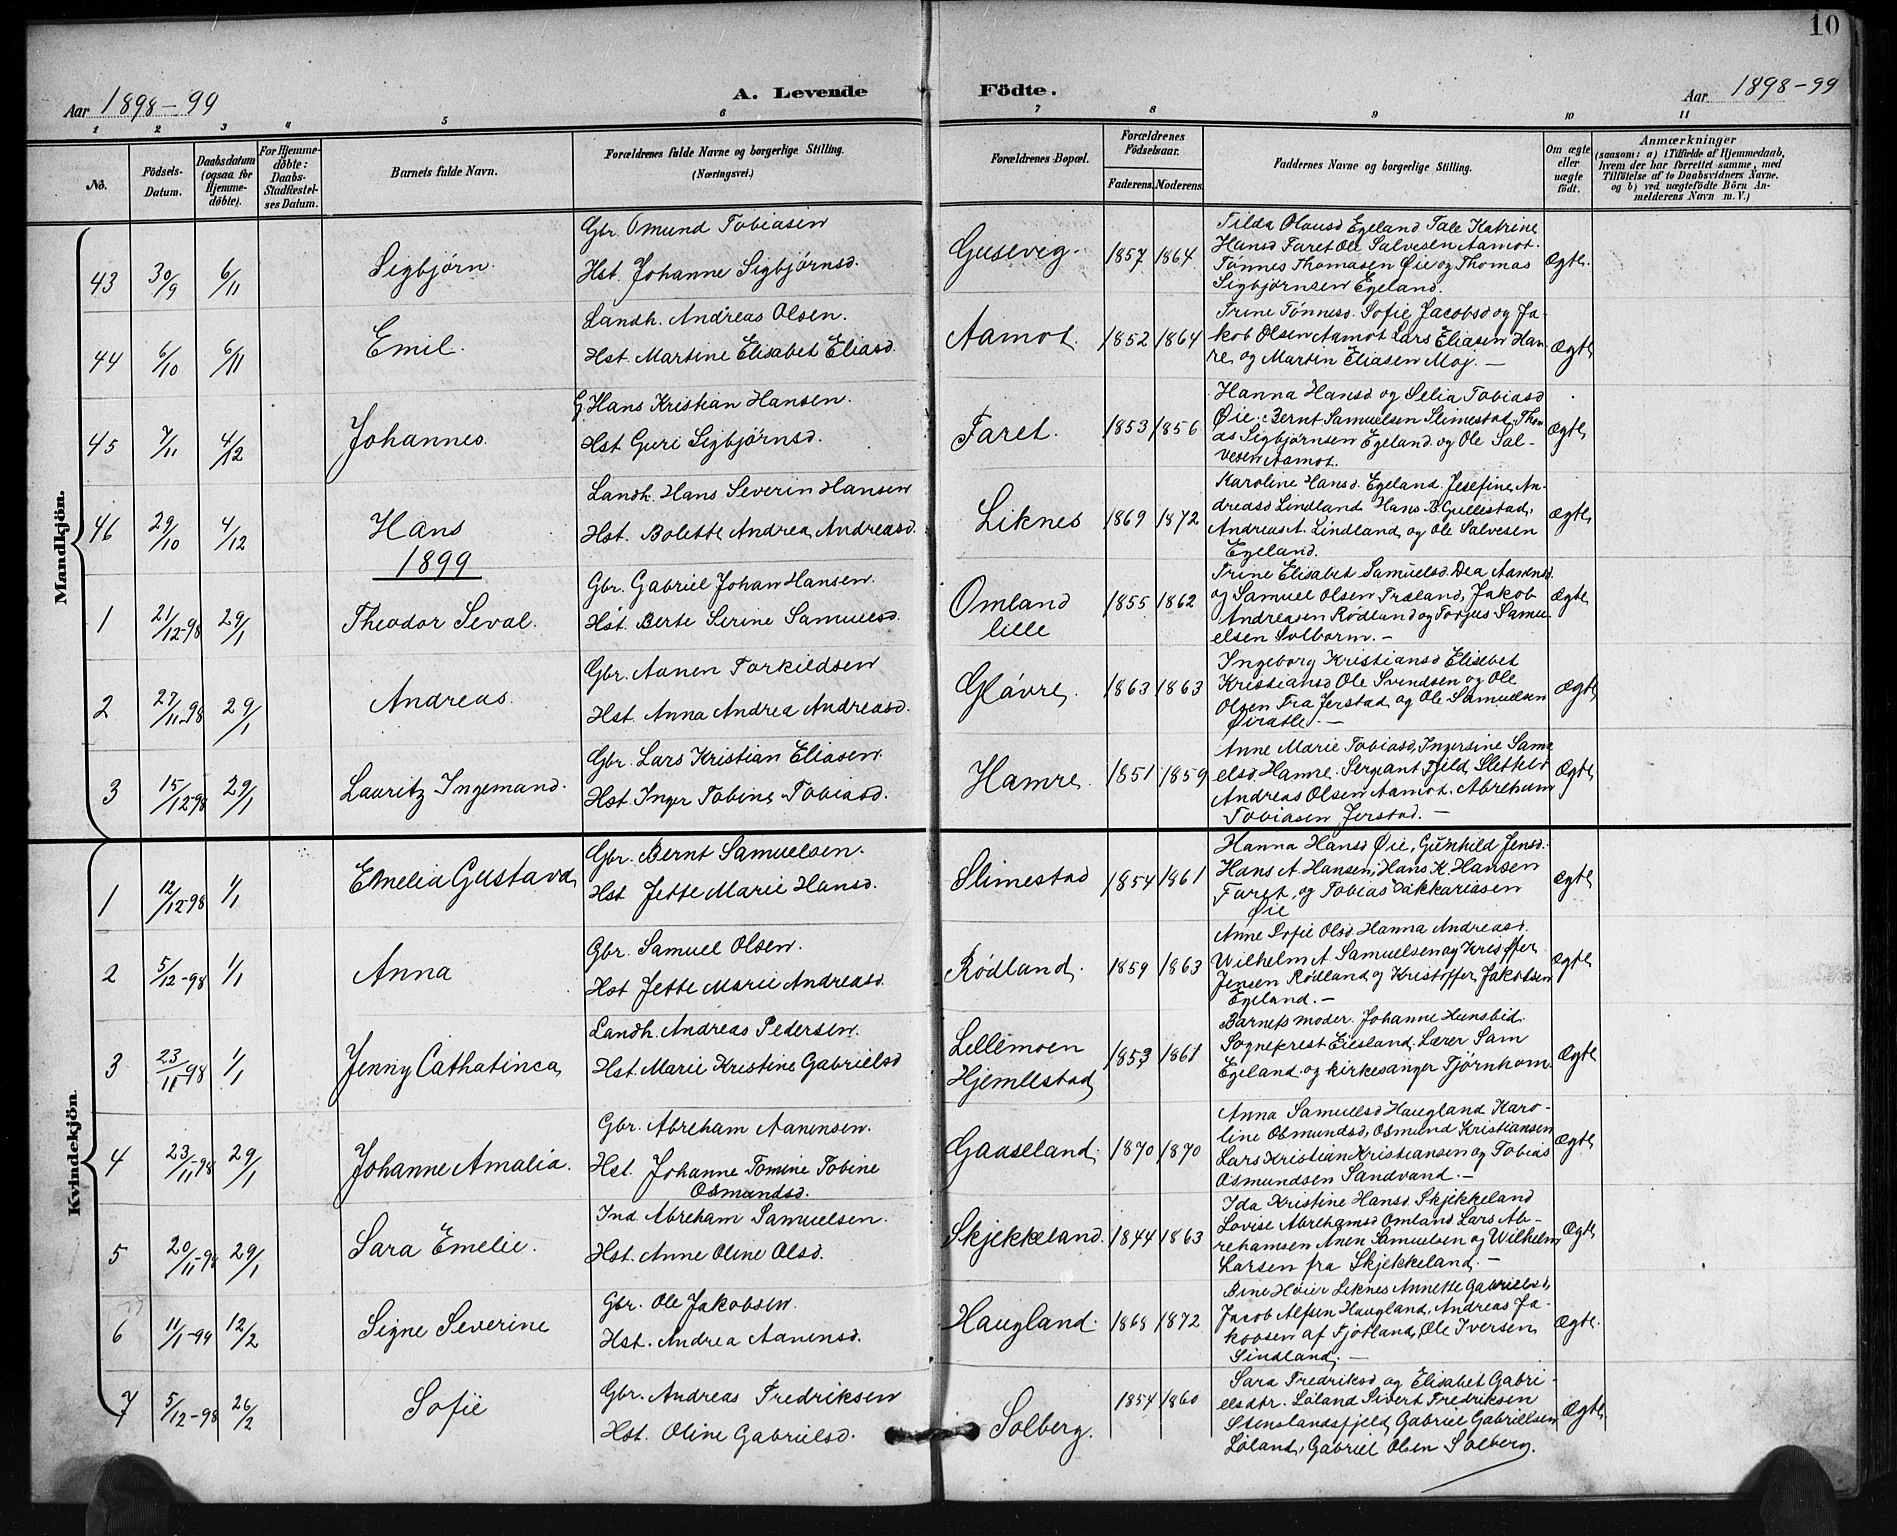 10
Aar 1898-99
A. Levende Födte.
Aar 1898-99
1 2 3 4 5 6 7 8 9 10 11
No.
Födsels-
Datum.
Daabsdatum
(ogsaa for
Hjemme-
döbte).
For Hjemme-
döbte:
Daabs-
Stadfæstel-
ses Datum.
Barnets fulde Navn.
Forældrenes fulde Navne og borgerlige Stilling.
(Næringsvei.)
Forældrenes Bopæl.
Forældrenes
Födselsaar.
Faderens. Moderens.
Faddernes Navne og borgerlige Stilling.
Om ægte
eller
uægte
födt.
Anmærkninger
(saasom: a) i Tilfælde af Hjemmedaab,
hvem der har forrettet samme, med
Tilföielse af to Daabsvidners Navne.
og b) ved uægtefödte Börn An-
melderens Navn m. V.)
Mandkjön.
43 30/9 6/11 Sigbjörn.
Gbr. Omund Tobiasen
Hst. Johanne Sigbjörnsd.
Guseveg. 1857 1864
Tilda Olausd Egeland Tale Katrine
Hansd Faret Ole Salvesen Aamot.
Tönnes Thomasen Øie og Thomas
Sigbjörnsen Egeland.
Ægte.
44 6/10 6/11 Emil.
Landh. Andreas Olsen.
Hst. Martine Elisabet Eliasd.
Aamot. 1852 1864
Trine Tönnesd. Sofie Jacobsd og Ja-
kob Olsen Aamot Lars Eliasen Ham-
re og Martin Eliasen Moj. —
Ægte
45 7/11 4/12 Johannes.
G Hans Kristian Hansen.
Hst Guri Sigbjörnsd.
Faret. 1853 1856
Hanna Hansd og Selia Tobiasd
Øie. Bernt Samuelsen Slimestad, Thom
as Sigbjörnsen Egeland. og Ole Sal-
vesen Aamot.
Ægte
46 29/10 4/12 Hans
Landh. Hans Severin Hansen
Hst. Bolette Andrea Andreasd.
Liknes 1869 1872
Karoline Hansd. Egeland. Josefine An-
dreasd Lindland Hans B. Gullestad,
Andreas A. Lindland og Ole Salvesen
Egeland.
Ægte
1899
1 21/12-98 29/1 Theodor Seval.
Gbr. Gabriel Johan Hansen.
Hst. Berte Serine Samuelsd.
Omland
lille
1855 1862
Trine Elisabet Samuelsd. Dea Aanensd
og Samuel Olsen Træland, Jakob
Andreasen Rödland og Torjus Samu-
elsen Solborm. —
Ægte
2 27/11-98 29/1 Andreas.
Gbr. Aanen Torkildsen
Hst. Anna Andrea Andreasd.
Glövre, 1863 1863
Ingeborg Kristiansd Elisebet
Kristiansd Ole Svendsen og Ole
Olsen Fra Jerstad og Ole Samuelsen
—
Ægte
3 15/12-98 29/1 Lauritz Ingemand.
Gbr. Lars Kristian Eliasen.
Hst. Inger Tobine Tobiasd.
Hamre. 1851 1859
Anne Marie Tobiasd, Ingersine Samu
elsd. Hamre. Sergeant Fjeld
Andreas Olsen Aamot. Abreham
Tobiasen Jerstad. —
Ægte
Kvindekjön.
1 12/12-98 1/1 Emelia Gustava
Gbr. Bernt Samuelsen.
Hst Jette Marie Hansd.
Slimestad 1854 1861
Hanna Hansd Øie, Gunhild Jensd.
Hans A. Hansen, Hans K. Hansen
Faret, og Tobias Sakkariasen
Øie
Ægte
2 5/12-98 1/1 Anna
Gbr. Samuel Olsen.
Hst Jette Marie Andreasd.
Rödland. 1859 1863
Anne Sofie Olsd. Hanna Andreasd.
Wilhelm A. Samuelsen og Kristoffer
Jensen Rödland og Kristoffer Jakobsen
Egeland. —
Ægte
3 23/11-98 1/1 Jenny Cathatinca
Landh. Andreas Pedersen.
Hst. Marie Kristine Gabrielsd
Lillemoen
Hjemlestad,
1853 1861
Barnets moder. Johanne Hunsbid.
Sogneprest Eiesland. Lærer Sam
Egeland. og kirkesanger Tjörnhom
Ægte
4 23/11-98 29/1 Johanne Amalia.
Gbr. Abreham Aanensen.
Hst. Johanne Tomine Tobine
Osmundsd.
Gaaseland. 1870 1870
Anna Samuelsd Haugland Karo-
line Osmundsd, Osmund Kristiansen
Lars Kristian Kristiansen og Tobias
Osmundsen Sandvand. —
Ægte
5 20/11-98 29/1 Sara Emelie.
Ind. Abreham Samuelsen.
Hst. Anne Oline Olsd.
Skjekkeland. 1844 1863
Ida Kristine Hansd. Skjekkeland
Lovise Abrehamsd Omland Lars Ab-
rehamsen Anen Samuelsen og Wilhelm
Larsen fra Skjekkeland. —
Ægte
6 11/1-99 12/2 Signe Severine
Gbr. Ole Jakobsen.
Hst. Andrea Aanensd.
Haugland. 1868 1872
Bine Høier Liknes Annette Gabrielsd,
Jacob Alfsen Haugland, Andreas Ja-
kobsen af Fjotland, Ole Iversen
Sindland. —
Ægte.
7 5/12-98 26/2 Sofie
Gbr. Andreas Fredriksen
Hst. Oline Gabrielsd.
Solberg. 1854 1860
Sara Fredriksd og Elisabet Gabri-
elsdtr. Löland Sivert Fredriksen
Stenslandsfjeld, Gabriel Gabrielsen
Löland, Gabriel Olsen Solberg.
Ægte.